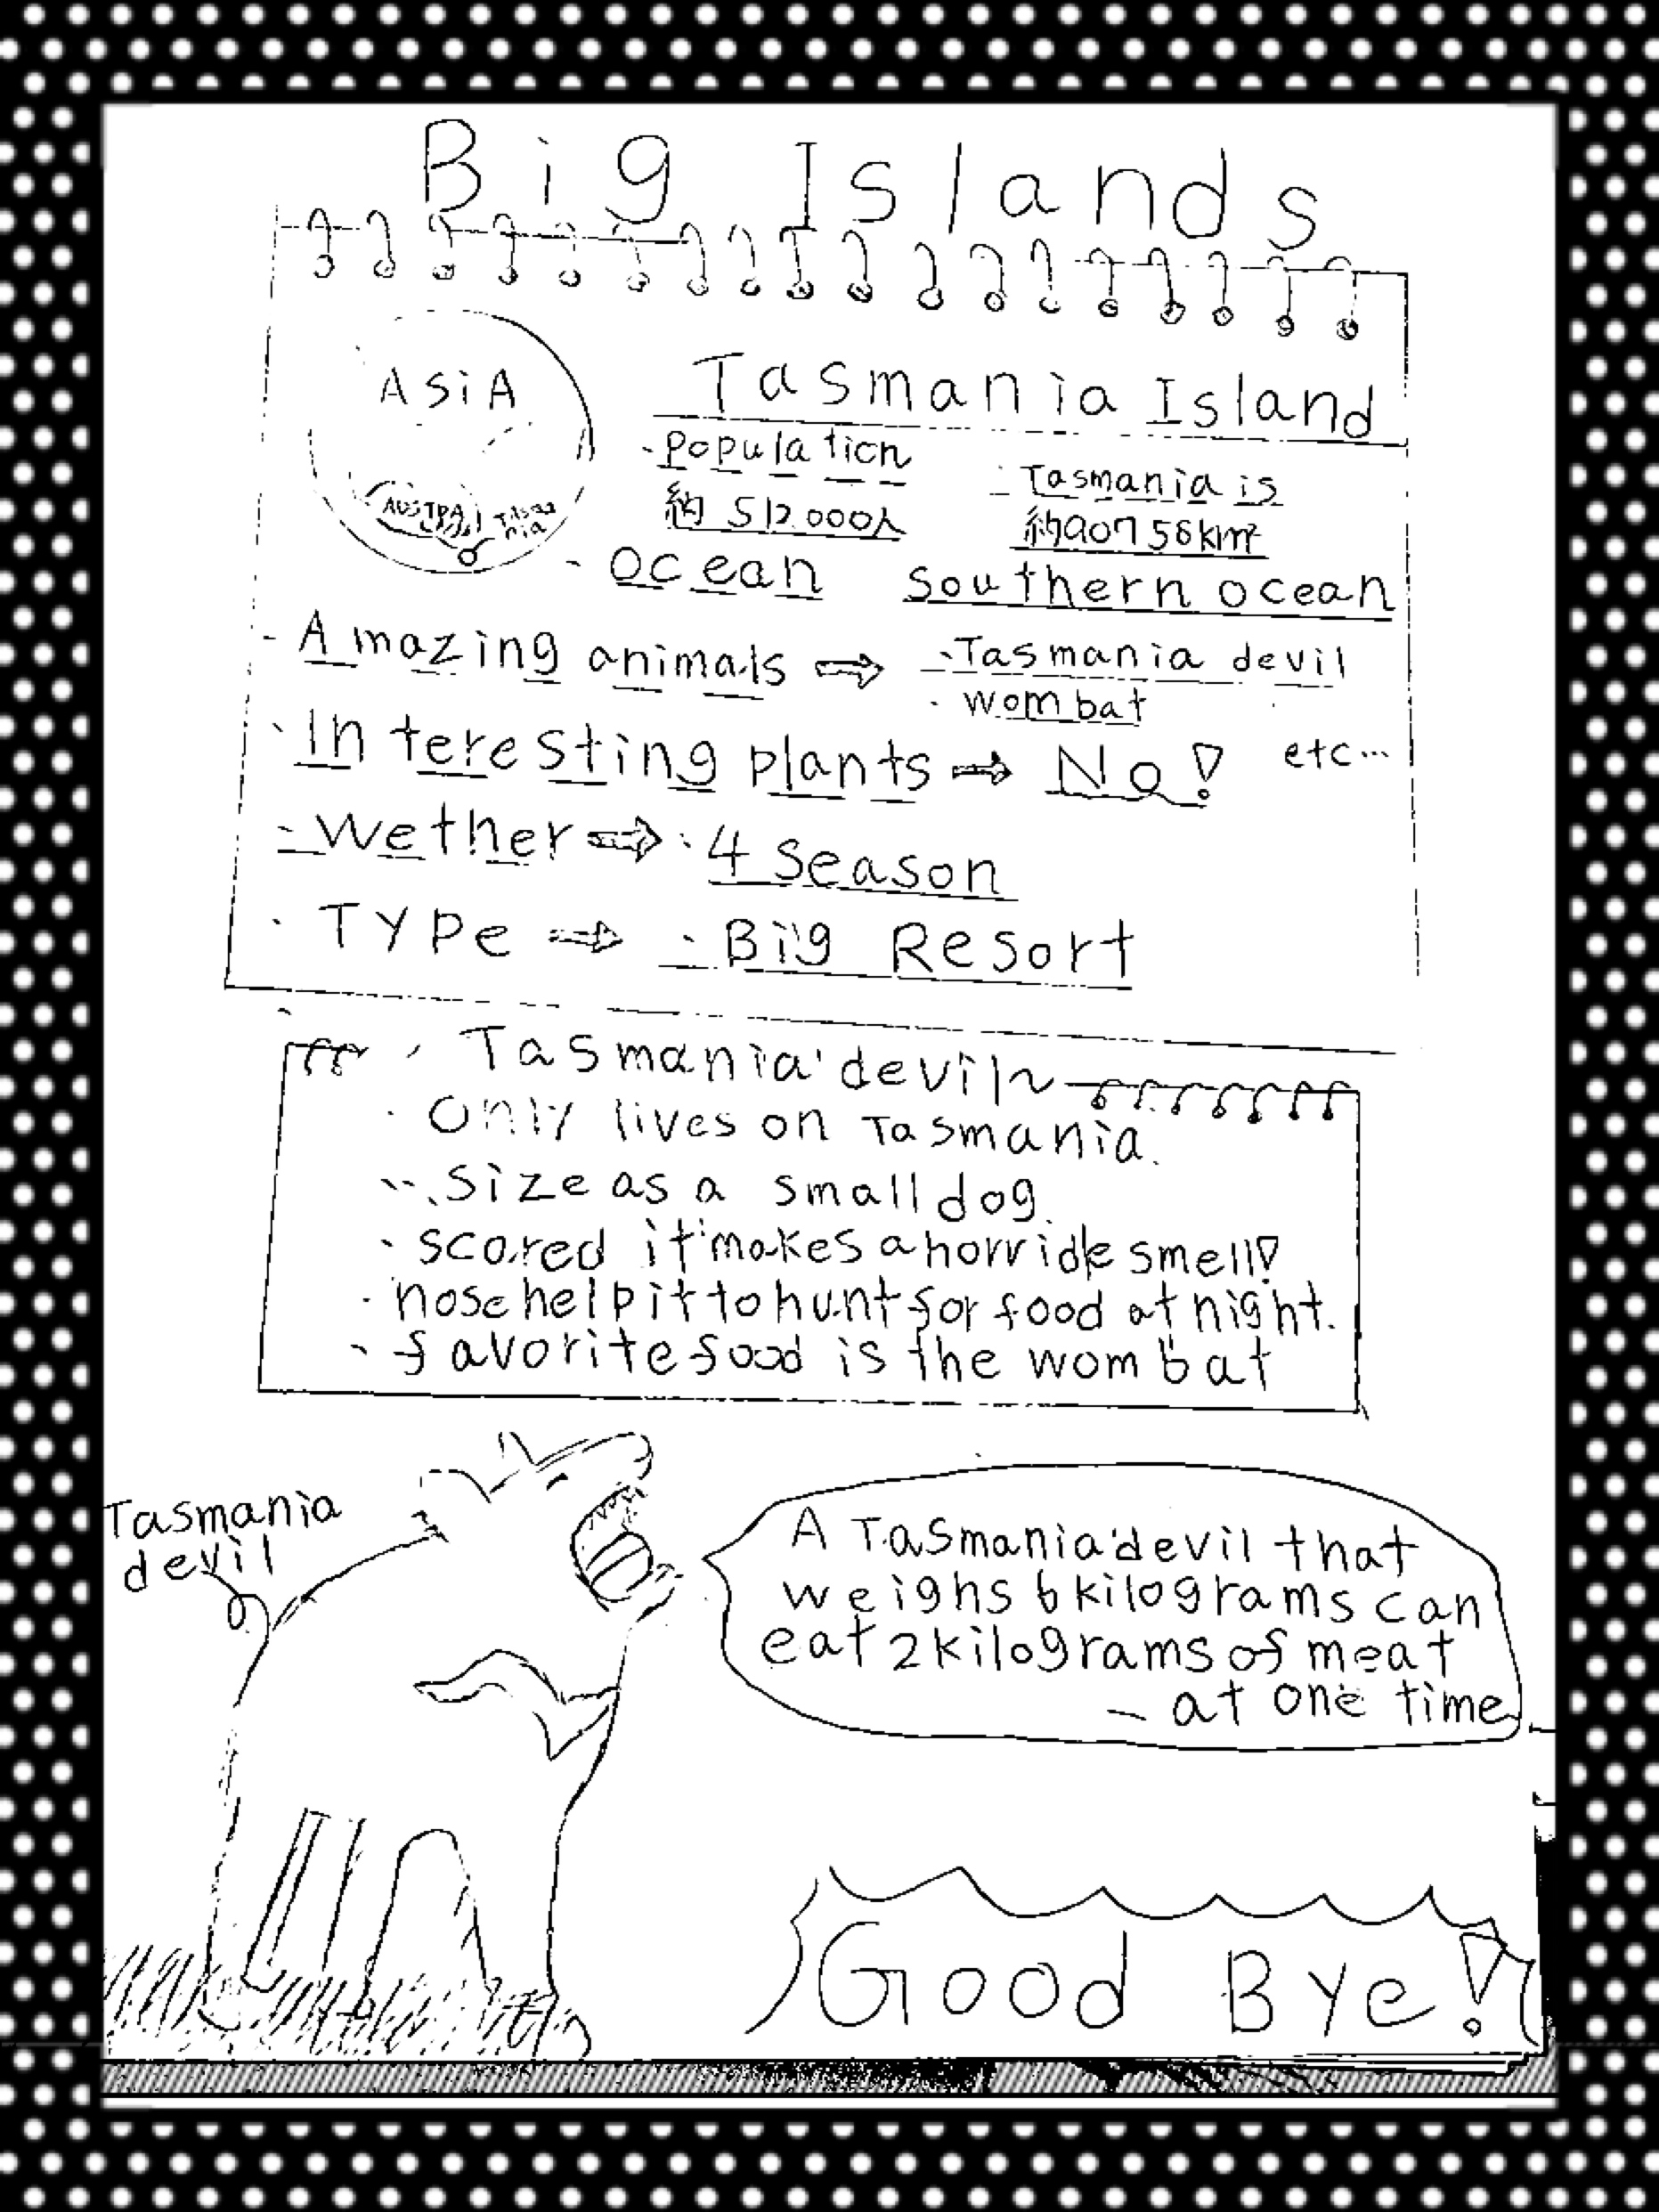 Big Islands
ASiA
AUSTRA
Tasmania
Tasmania Island
・Population
約 512.000人
・Tasmania is
約90758km²
・ocean southern ocean
・Amazing animals ⇨ ・Tasmania devil
・wombat
etc…
・Interesting plants ⇨ No!
・Wether ⇨ ・4 season
・Type ⇨ ・Big Resort
Tasmania devil~
・Only lives on Tasmania.
・size as a small dog.
・scared it makes a horride smell!
・nose help it to hunt for food at night.
・favorite food is the wombat
Tasmania
devil
A Tasmania devil that
weighs 6 kilograms can
eat 2 kilograms of meat
at one time
Good Bye!